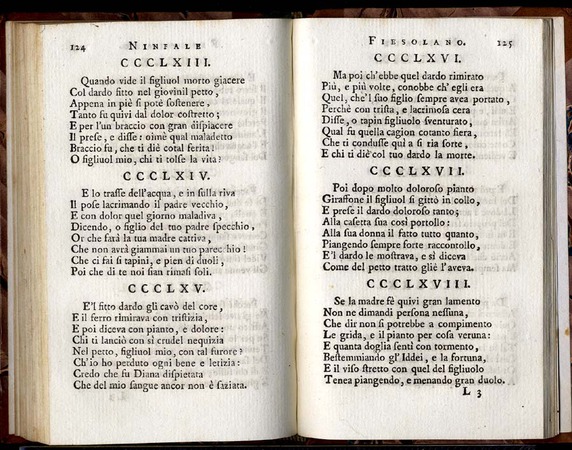 124 NINFALE
CCCLXIII.
Quando vide il figliuol morto giacere
Col dardo fitto nel giovinil petto,
Appena in piè si potè sostenere,
Tanto fu quivi dal dolor costretto;
E per l'un braccio con gran dispiacere
Il prese, e disse: oimè qual maladetto
Braccio fu, che ti diè cotal ferita?
O figliuol mio, chi ti tolse la vita?
CCCLXIV.
E lo trasse dell'acqua, e in sulla riva
Il pose lacrimando il padre vecchio,
E con dolor quel giorno maladiva,
Dicendo, o figlio del tuo padre specchio,
Or che farà la tua madre cattiva,
Che non avrà giammai un tuo parecchio!
Che ci fai sì tapini, e pien di duoli,
Poi che di te noi sian rimasi soli.
CCCLXV.
E'l fitto dardo gli cavò del core,
E il ferro rimirava con tristizia,
E poi diceva con pianto, e dolore:
Chi ti lanciò con sì crudel nequizia
Nel petto, figliuol mio, con tal furore?
Ch'io ho perduto ogni bene e letizia:
Credo che fu Diana dispietata
Che del mio sangue ancor non è saziata.
FIESOLANO. 125
CCCLXVI.
Ma poi ch'ebbe quel dardo rimirato
Più, e più volte, conobbe ch'egli era
Quel, che'l suo figlio sempre avea portato,
Perchè con trista, e lacrimosa cera
Disse, o tapin figliuolo sventurato,
Qual fu quella cagion cotanto fiera,
Che ti condusse quì a sì ria sorte,
E chi ti diè col tuo dardo la morte.
CCCLXVII.
Poi dopo molto doloroso pianto
Giraffone il figliuol si gittò in collo,
E prese il dardo doloroso tanto;
Alla casetta sua così portollo:
Alla sua donna il fatto tutto quanto,
Piangendo sempre forte raccontollo,
E'l dardo le mostrava, e sì diceva
Come del petto tratto gliè l'aveva.
CCCLXVIII.
Se la madre fè quivi gran lamento
Non ne dimandi persona nessuna,
Che dir non si potrebbe a compimento
Le grida, e il pianto per cosa veruna:
E quanta doglia sentì con tormento,
Bestemmiando gl' Iddei, e la fortuna,
E il viso stretto con quel del figliuolo
Tenea piangendo, e menando gran duolo.
L 3